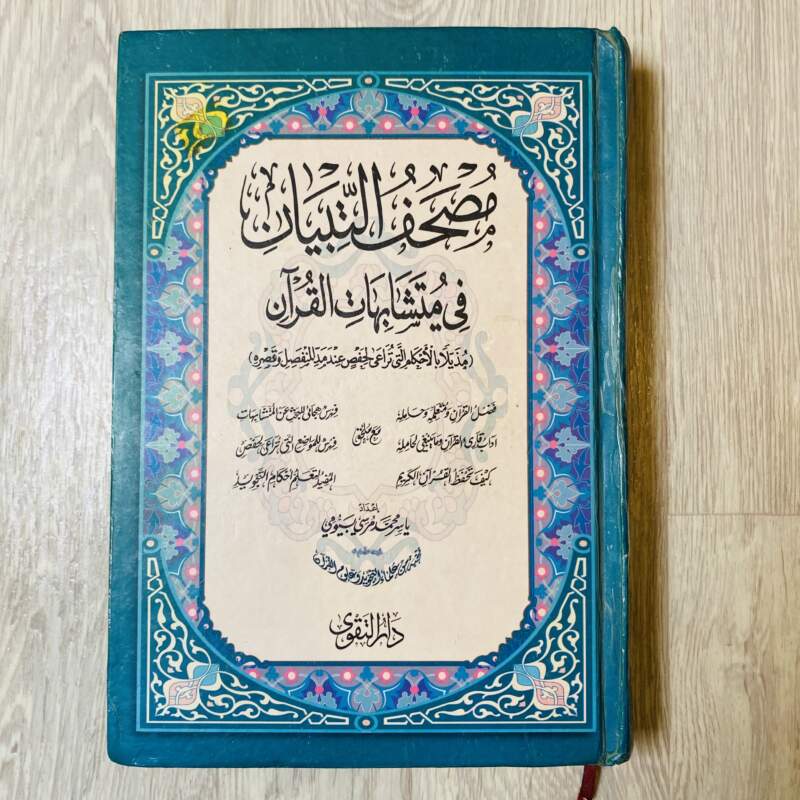 مُصْحَفُ التِّبْيَان
فِي مُتَشَابِهَاتِ القُرْآنِ
(مُذَيَّلًا بِالأَحْكَامِ الَّتِي تُرَاعَى لِحَفْصٍ عِنْدَ مَدِّ المُنْفَصِلِ وَقَصْرِهِ)
فضل القرآن ومتعلمه وحامله
آداب قارئ القرآن وما ينبغي لحامله
كيف تحفظ القرآن الكريم
مع ملحق
فهرس هجائي للبحث عن المتشابهات
فهرس للمواضع التي تراعى لحفص
المفيد لتعلم أحكام التجويد
إعداد
ياسر محمد مرسي بيومي
من علماء التجويد وعلوم القرآن
دار التقوى